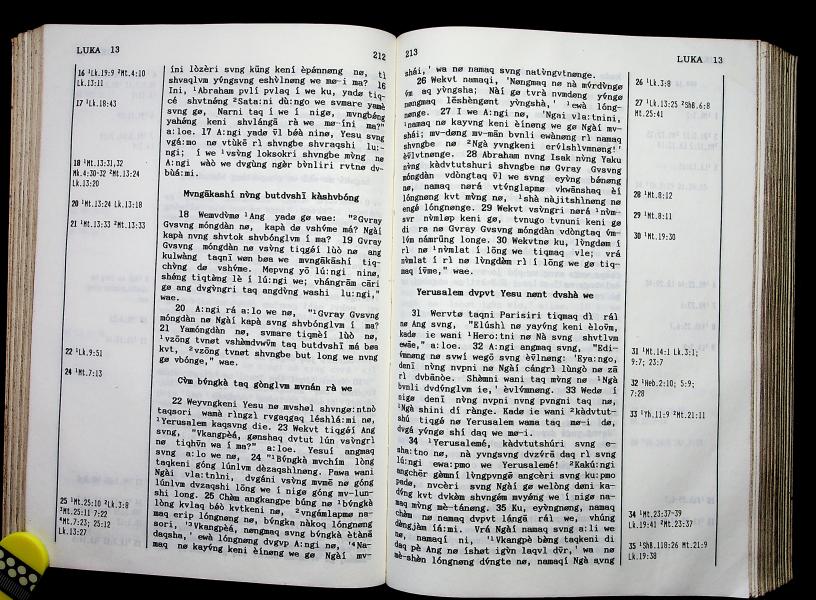 LUKA 13
212
16 ¹Lk.19:9 ²Mt.4:10
Lk.13:11
17 ¹Lk.18:43
18 ¹Mt.13:31,32
Mk.4:30-32 ²Mt.13:24
Lk.13:20
20 ¹Mt.13:24 Lk.13:18
21 ¹Mt.13:33 ²Mt.13:33
22 ¹Lk.9:51
24 ¹Mt.7:13
25 ¹Mt.25:10 ²Lk.3:8
³Mt.25:11 7:22
⁴Mt.7:23; 25:12
Lk.13:27
íni lòzèri svng kūng kení èpánnøng nø, tì
shvaqlvm yv́ngsvng eshv̀lnøng we mø-í ma? 16
Ini, ¹Abraham pvlī pvlaq í we ku, yadø tiq-
cé shvtnøng ²Sata:ni dù:ngo we svmare yamè
svng gø, Narní taq í we í nigø, mvngbéng
yahéng kení shvlángā rà we mø-íni ma?"
a:loe. 17 A:ngí yadø v̄l béá ninø, Yesu svng
vgá:mo nø vtùkē rì shvngbē shvraqshì lu:-
ngì; í we ¹vsv̀ng loksokrì shvngbē mv̀ng nø
A:ngí wàò we dvgùng ngèr bv̀nlìrì rvtnø dv-
bùá:mì.
Mvngākashí nv̀ng butdvshī kàshvbóng
18 Wemvdv̀mø ¹Ang yadø gø wae: "²Gvray
Gvsvng móngdàn nø, kapà dø vshv́mē má? Ngàí
kapà nvng shvtok shvbónglvm í ma? 19 Gvray
Gvsvng móngdàn nø vsv̀ng tiqgéí lùò nø ang
kulwàng taqnī wøn bøà we mvngākāshí tiq-
chv̀ng dø vshv́mē. Mepvng yō lú:ngì ninø,
shéng tiqtèng lè í lú:ngì we; vhángràm cārì
gø ang dvgv̀ngrì taq angdv̀ng washì lu:ngì,"
wae.
20 A:ngí rá a:lo we nø, "¹Gvray Gvsvng
móngdàn nø Ngàí kapà svng shvbónglvm í ma?
21 Yamóngdàn nø, svmarē tiqmèí lùò nø,
¹vzōng tvnøt vshèmdvwv̄m taq butdvshī má bøà
kvt, ²vzōng tvnøt shvngbē but long we nvng
gø vbónge," wae.
Cv̀m bv́ngkà taq gònglvm mvnán rà we
22 Weyvngkení Yesu nø mvshøl shvngø:ntnò
taqsori wamà rìngzì rvgaqgaq léshlá:mì nø,
¹Yerusalem kaqsvng dìe. 23 Wekvt tiqgéí Ang
svng, "Vkangpèá, gønshaq dvtut lún vsv̀ngrì
nø tiqhv̀n wa í ma?" a:loe. Yesuí angmaq
svng a:lo we nø, 24 "¹Bv́ngkà mvchím lòng
taqkení góng lúnlvm dèzaqshìnøng. Pawa wanì
Ngàí vla:tnìni, dvgáni vsv̀ng mvmē nø góng
lúnlvm dvzaqshì lòng we í nigø mv-lún-
shì long. 25 Chàm angkangpè búng nø ¹bv́ngkà
lòng kvlaq béò kvtkení nø, ²vngámlapmø na-
maq erip lóngnøng nø, bv́ngkà nàkoq lóngnøng
sori, '³Vkangpèá, nøngmaq svng bv́ngkà ètànā
daqsha,' ewà lóngnøng dvgvp A:ngí nø, '⁴Na-
maq nø kayv́ng kení èínøng we gø Ngàí mv-
213
LUKA 13
shái,' wa nø namaq svng natv̀ngvtnønge.
26 Wekvt namaqí, 'Nøngmaq nø nà mv́rdv̀ngø
v́m aq yv̀ngsha; Nàí gø tvrà nvmdøng yv́ngø
nøngmaq lēshèngønt yv̀ngshà,' ¹ewà lóng-
nønge. 27 I we A:ngí nø, 'Ngaí vla:tnìni,
¹namaq nø kayv́ng kení èínøng we gø Ngàí mv-
shái; mv-døng mv-mān bvnlì ewànøng rì namaq
shvngbē nø ²Ngà yvngkení erv́lshìvmnøng!'
èv̄lvtnønge. 28 Abraham nvng Isak nv̀ng Yaku
nv̀ng kàdvtutshurì shvngbē nø Gvray Gvsvng
móngdàn vdòngtaq v̄l we svng eyv̀ng bénøng
nø, namaq nørá vtv́nglapmø vkwánshaq èí
lóngnøng kvt mv̀ng nø, ¹shà nàjitshìnøng nø
engé lóngnønge. 29 Wekvt vsv̀ngrì nørá ¹nv̀m-
svr nv̀mløp kení gø, tvnugo tvnuní kení gø
dì ra nø Gvray Gvsvng móngdàn vdòngtaq v́m-
lv́m námrūng longe. 30 Wekvtnø ku, lv̀ngdøm í
rì nø ¹nv̀mlat í lōng we tiqmaq vle; vrá
nv̀mlat í rì nø lv̀ngdàm rì í lōng we gø tiq-
maq ív̄me," wae.
Yerusalem dvpvt Yesu nønt dvshà we
31 Wervtø taqni Parisiri tiqmaq dì rál
nø Ang svng, "Elúshì nø yayv́ng kení èlov̄m,
kadø ie wani ¹Hero:tnì nø Nà svng shvtlvm
ewāe," a:loe. 32 A:ngí angmaq svng, "Edì-
v́mnøng nø svwí wegō svng èv̄lnøng: 'Eya:ngo,
denī nv̀ng nvpni nø Ngàí cángrì lùngò nø zā
rì dvbānòe. Shèmni wani taq mv̀ng nø ¹Ngà
bvnli dvdv́nglvm íe,' èvlv́mnøng. 33 Wedø í
nigø denī nv̀ng nvpni nvng pvngni taq nø,
¹Ngà shìnì dí rànge. Kadø íe wani ²kàdvtut-
shú tiqgō nø Yerusalem wama taq mø-ì dø,
dvgá yv́ngø shí daq we mø-í.
34 ¹Yerusalemé, kàdvtutshúrì svng e-
sha:tno nø, nà yvngsvng dvzv́rā daq rì svng
lú:ngì ewa:pmo we Yerusalemé! ²Kakú:ngì
angchēr gàmní lv̀ngpvngē angcèrì svng ku:pmo
padø, nvcèrì svng Ngàí gø welòng dønì ka-
dv́ng kvt dvkøm shvngøm mvyøng we í nigø na-
maq mv̀ng mè-tánøng. 35 Ku, eyv̀ngnøng, namaq
chv̀m nø namaq dvpvt lángā rál we, vhúng
dèngjàm íá:mì. Vrá Ngàí namaq svng alì we
nø, namaqí nì, '¹Vkangpè bèng taqkení dì
daq pè Ang nø íshøt ígv̀n laqvl dv̄r,' wa nø
mè-shèn lóngnøng dv́ngtē nø, namaqí Ngà svng
26 ¹Lk.3:8
27 ¹Lk.13:25 ²ShB.6:8
Mt.25:41
28 ¹Mt.8:12
29 ¹Mt.8:11
30 ¹Mt.19:30
31 ¹Mt.14:1 Lk.3:1;
9:7; 23:7
32 ¹Heb.2:10; 5:9;
7:28
33 ¹Yh.11:9 ²Mt.21:11
34 ¹Mt.23:37-39
Lk.19:41 ²Mt.23:37
35 ¹ShB.118:26 Mt.21:9
Lk.19:38